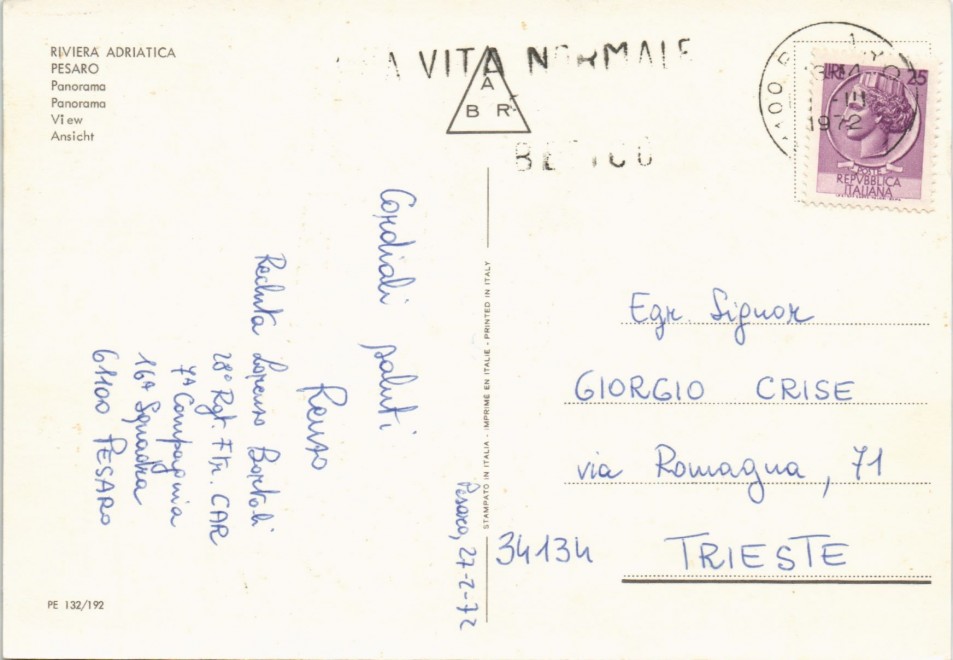 RIVIERA ADRIATICA
PESARO
Panorama
Panorama
View
Ansicht
VITA NORMALE
A
B R
1972
LIRE 25
POSTE
REPVBBLICA
ITALIANA
Cordiali saluti
Renzo
Recluta Lorenzo Bortoli
28° Rgt. Ftr. CAR
7ª Compagnia
16ª Squadra
61100 PESARO
Pesaro, 27-2-72
STAMPATO IN ITALIA - IMPRIME EN ITALIE - PRINTED IN ITALY
Egr. Signor
GIORGIO CRISE
via Romagna, 71
34134 TRIESTE
PE 132/192